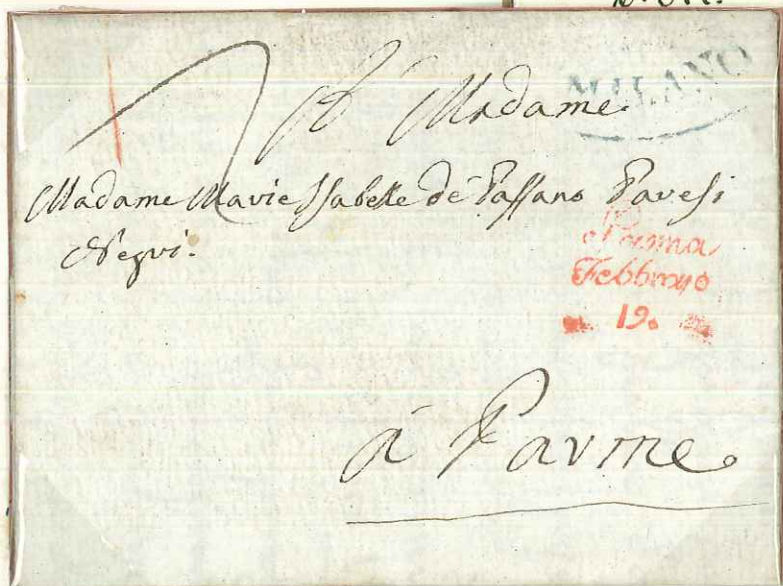 MILANO
A Madame
Madame Marie Isabelle de Passano Pavesi
Negri.
Parma
Febbraio
19.
à Parme.